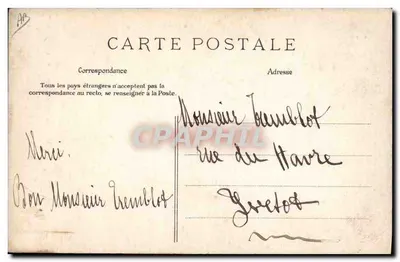 CARTE POSTALE
Correspondance
Adresse
Tous les pays étrangers n'acceptent pas la
correspondance au recto, se renseigner à la Poste.
Merci.
Bon Monsieur Tremblot
Monsieur Tremblot
rue du Havre
Yvetot
CPAPHIL